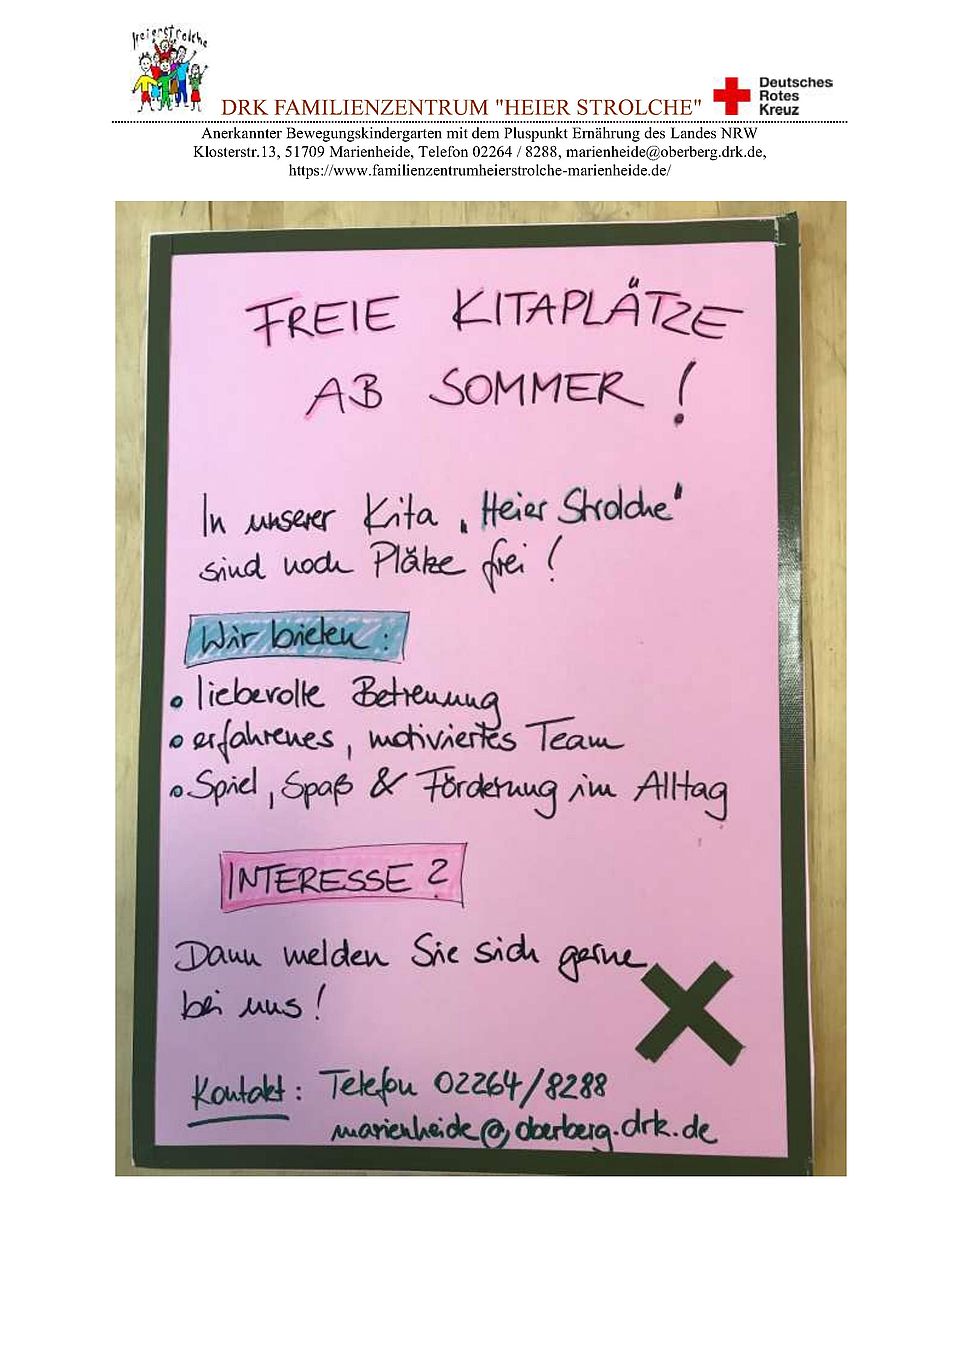 heierstrolche
DRK FAMILIENZENTRUM "HEIER STROLCHE"
Deutsches
Rotes
Kreuz
Anerkannter Bewegungskindergarten mit dem Pluspunkt Ernährung des Landes NRW
Klosterstr.13, 51709 Marienheide, Telefon 02264 / 8288, marienheide@oberberg.drk.de,
https://www.familienzentrumheierstrolche-marienheide.de/
FREIE KITAPLÄTZE
AB SOMMER!
In unserer Kita „Heier Strolche"
sind noch Plätze frei!
Wir bieten:
• liebevolle Betreuung
• erfahrenes, motiviertes Team
• Spiel, Spaß & Förderung im Alltag
INTERESSE?
Dann melden Sie sich gerne
bei uns!
Kontakt: Telefon 02264/8288
marienheide@oberberg.drk.de